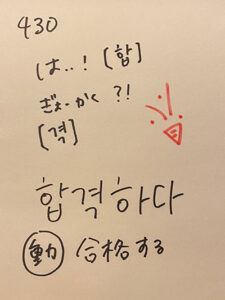 430
は‥! [합]
ぎょーかく ?!
[격]
합격하다
動 合格する